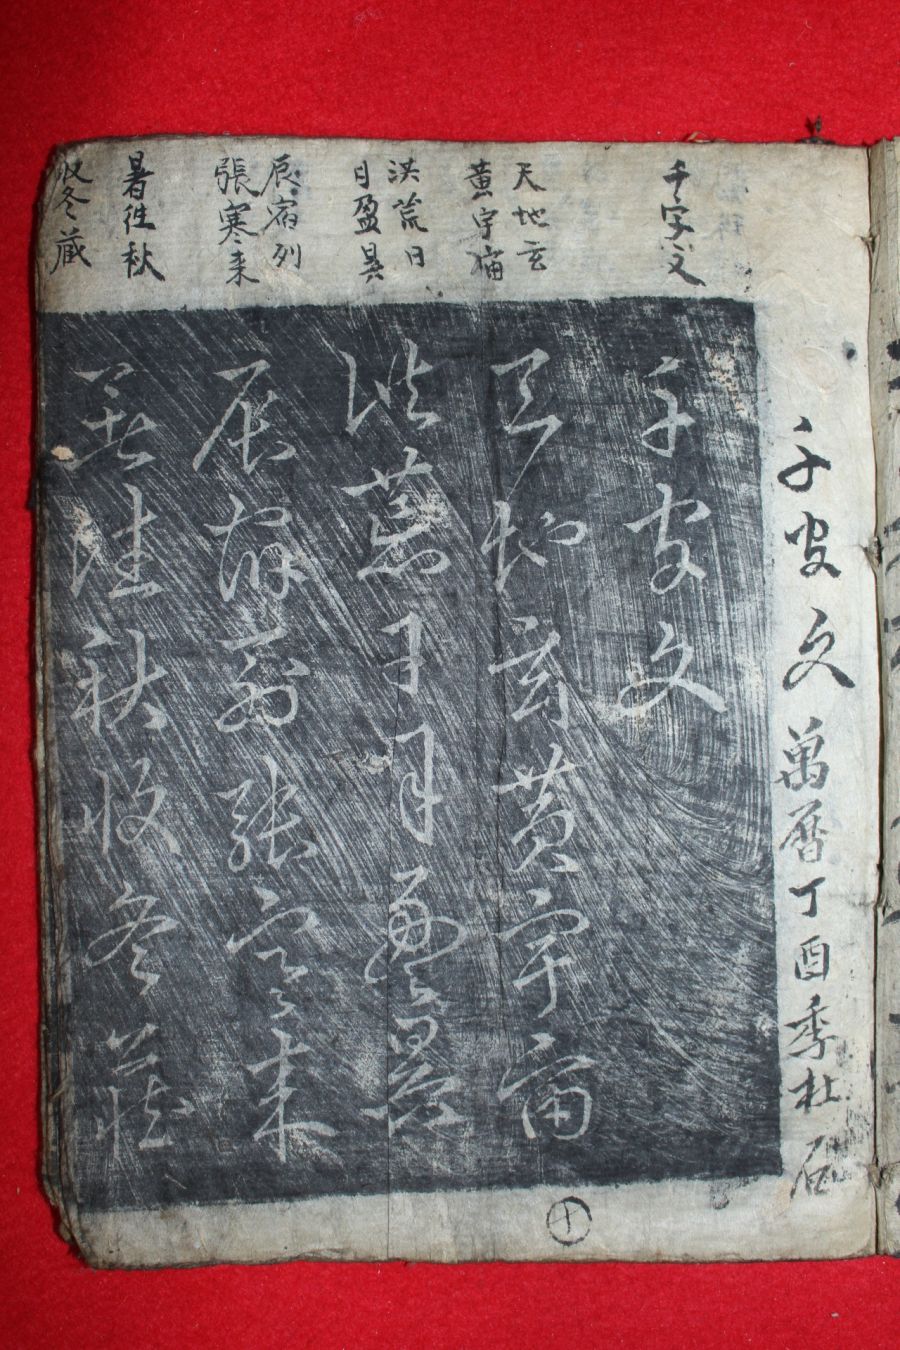 千字文萬曆丁酉季杜
千字文
天地玄
黃宇宙
洪荒日
月盈昃
辰宿列
張寒来
暑往秋
收冬藏
千字文
天地玄黃宇宙
洪荒日月盈昃
辰宿列張寒来
暑往秋收冬藏
十